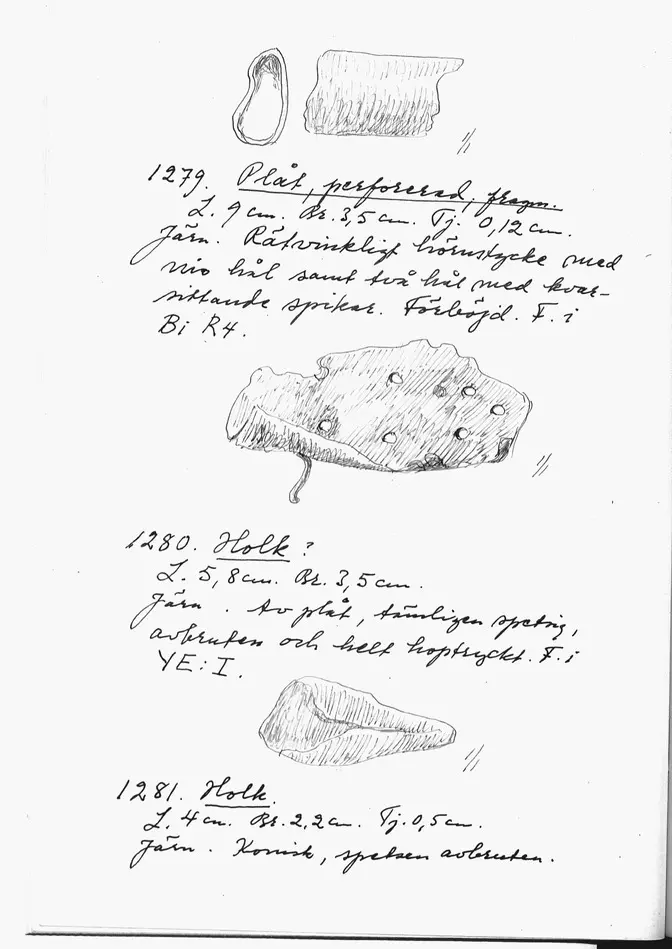 1/1
1279. Plåt, perforerad, fragm.
L. 9 cm. Br. 3,5 cm. Tj. 0,12 cm.
Järn. Rätvinkligt hörnstycke med
nio hål samt två hål med kvar-
sittande spikar. Förböjd. F. i
Bi R4.
1/1
1280. Holk?
L. 5,8 cm. Br. 3,5 cm.
Järn. Av plåt, tämligen spetsig,
avbruten och helt hoptryckt. F. i
YE: I.
1/1
1281. Holk.
L. 4 cm. Br. 2,2 cm. Tj. 0,5 cm.
Järn. Konisk, spetsen avbruten.